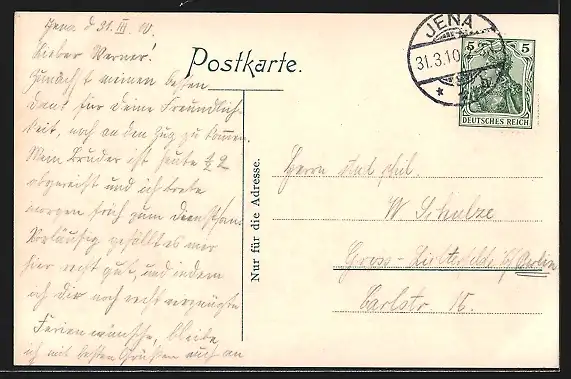 Jena d 31. III 10.
Lieber Werner!
Zunächst meinen besten
Dank für deine Freundlich-
keit, noch an den Zug zu kommen.
Mein Bruder ist heute
abgereist und ich trete
morgen früh zum Dienst an.
Vorläufig gefällt es mir
hier recht gut, und indem
ich dir noch recht vergnügte
Ferien wünsche, bleibe
ich mit besten Grüßen auch an
Postkarte.
Nur für die Adresse.
JENA
31.3.10
5 5
DEUTSCHES REICH
Herrn stud phil.
W Schulze
Gross-Lichterfelde b/ Berlin
Carlstr 15.